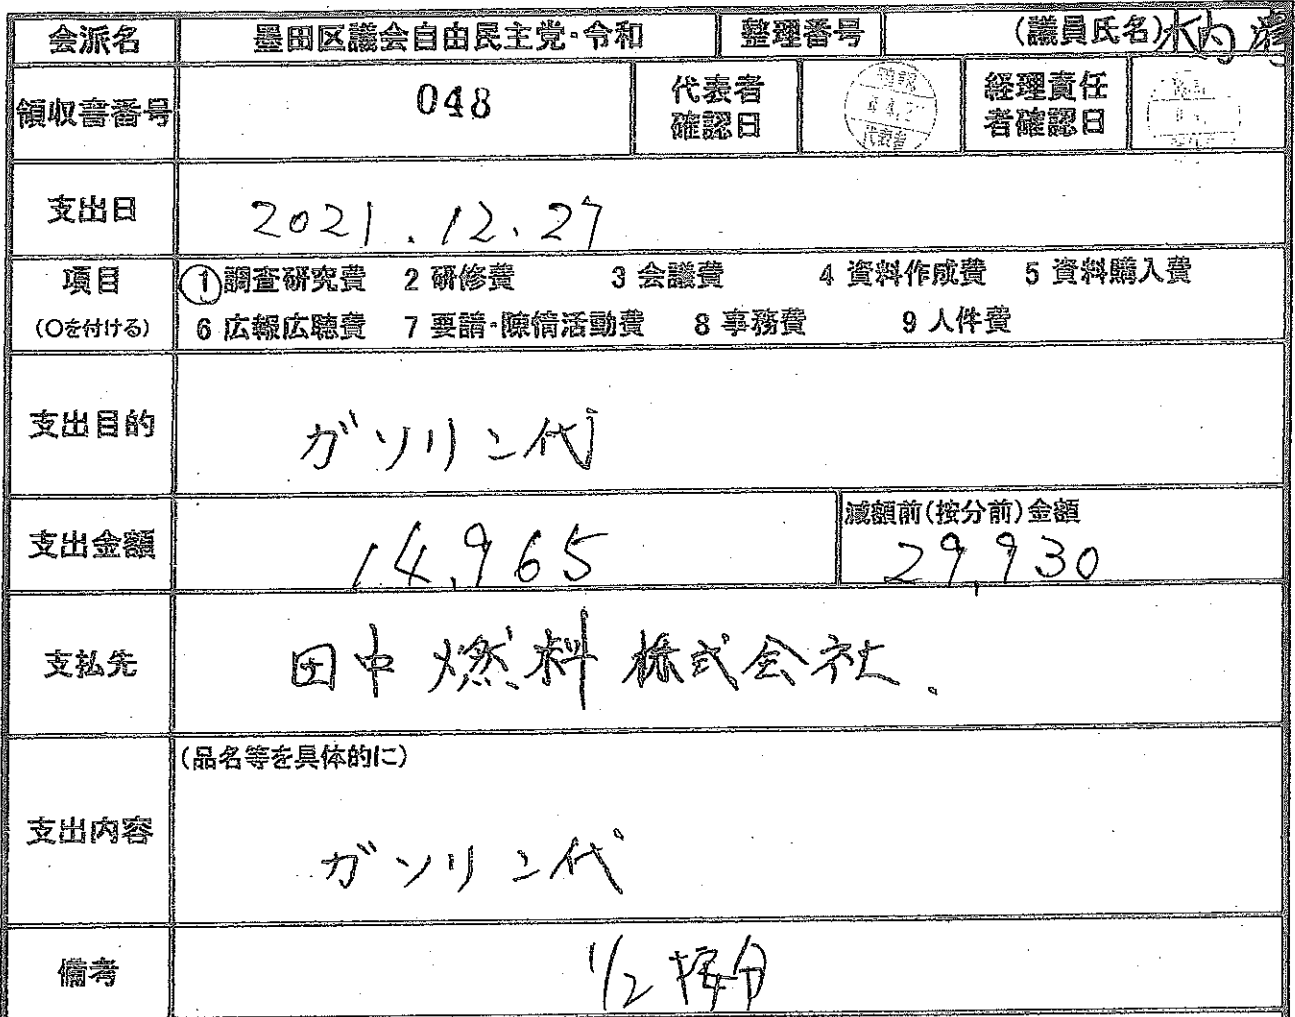 会派名 墨田区議会自由民主党・令和 整理番号 (議員氏名)木内 清
領収書番号 048 代表者確認日 確認 代表者 経理責任者確認日
支出日 2021.12.27
項目 ①調査研究費 2 研修費 3 会議費 4 資料作成費 5 資料購入費
(〇を付ける) 6 広報広聴費 7 要請・陳情活動費 8 事務費 9 人件費
支出目的 ガソリン代
支出金額 14,965 減額前(按分前)金額 29,930
支払先 田中燃料株式会社.
支出内容 (品名等を具体的に)
ガソリン代
備考 1/2 按分